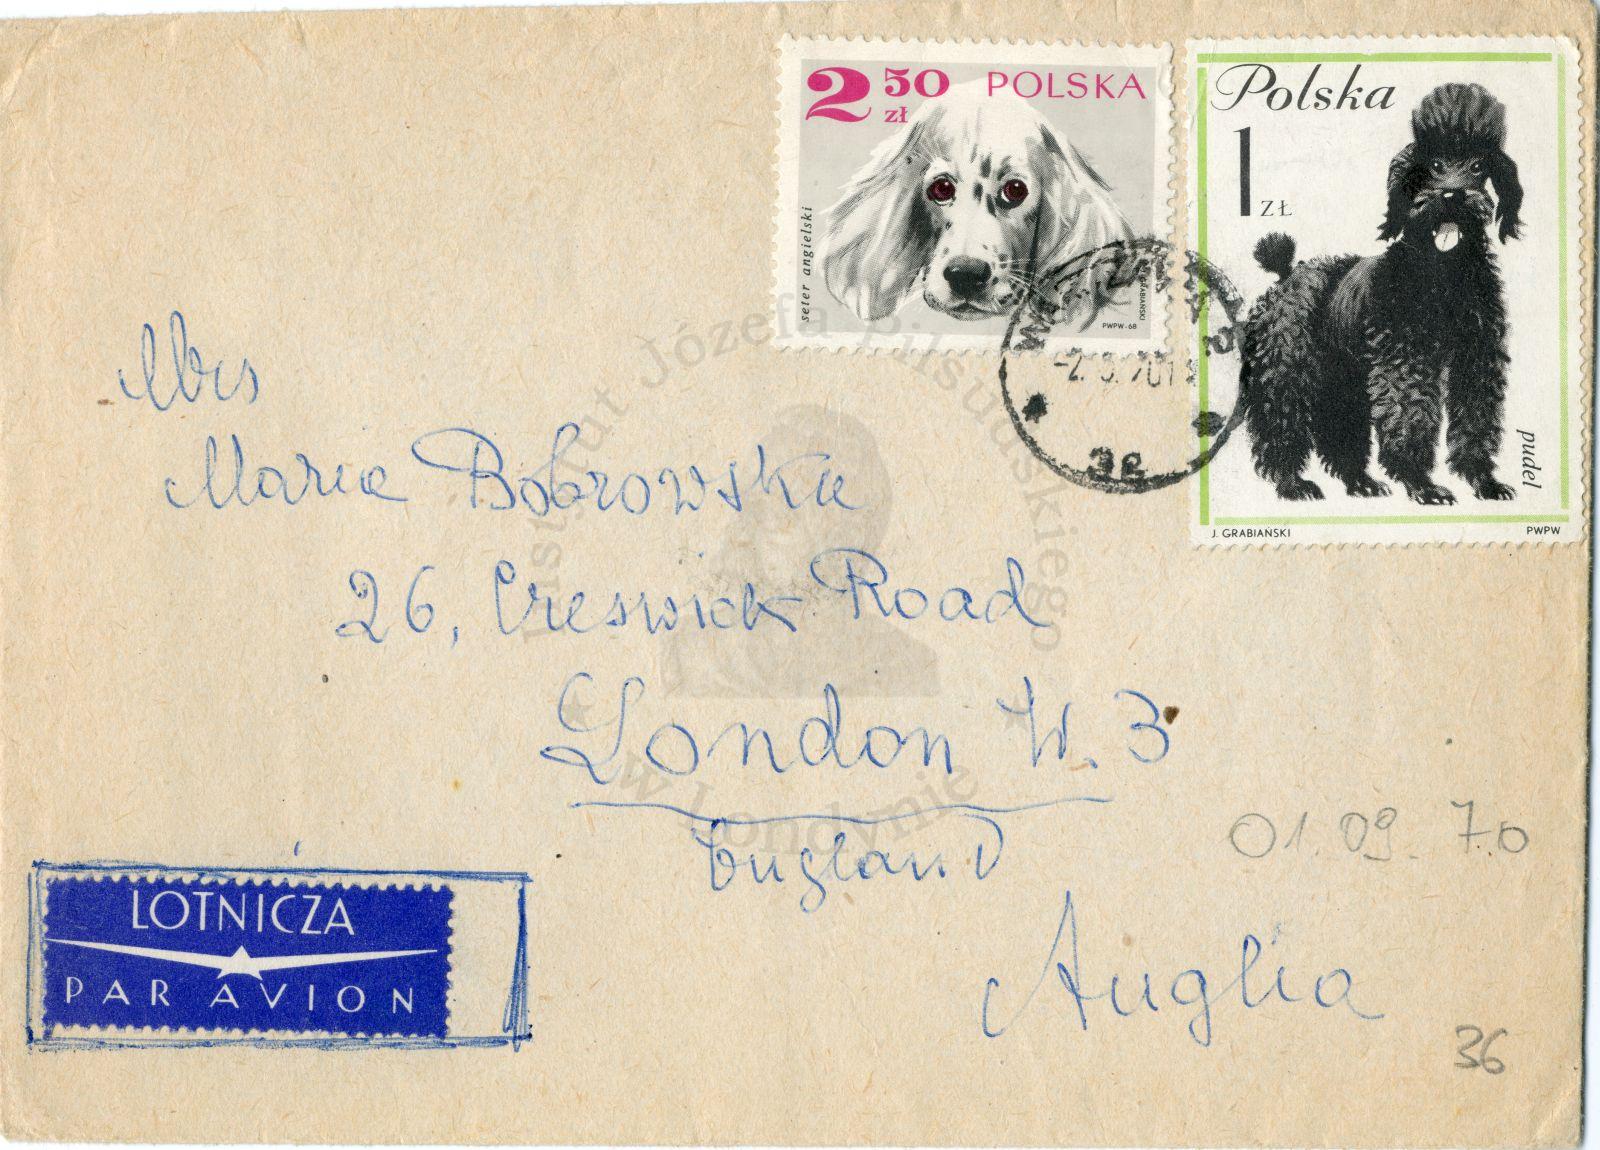 2 50 zł POLSKA
seter angielski
GRABIAŃSKI
PWPW-68
Polska
1 ZŁ
pudel
J. GRABIAŃSKI
PWPW
WARSZAWA
-2. 70
3e
Mrs
Maria Bobrowska
26, Creswick Road
London W. 3
England
Anglia
01.09.70
36
LOTNICZA
PAR AVION
Instytut Józefa Piłsudskiego
w Londynie